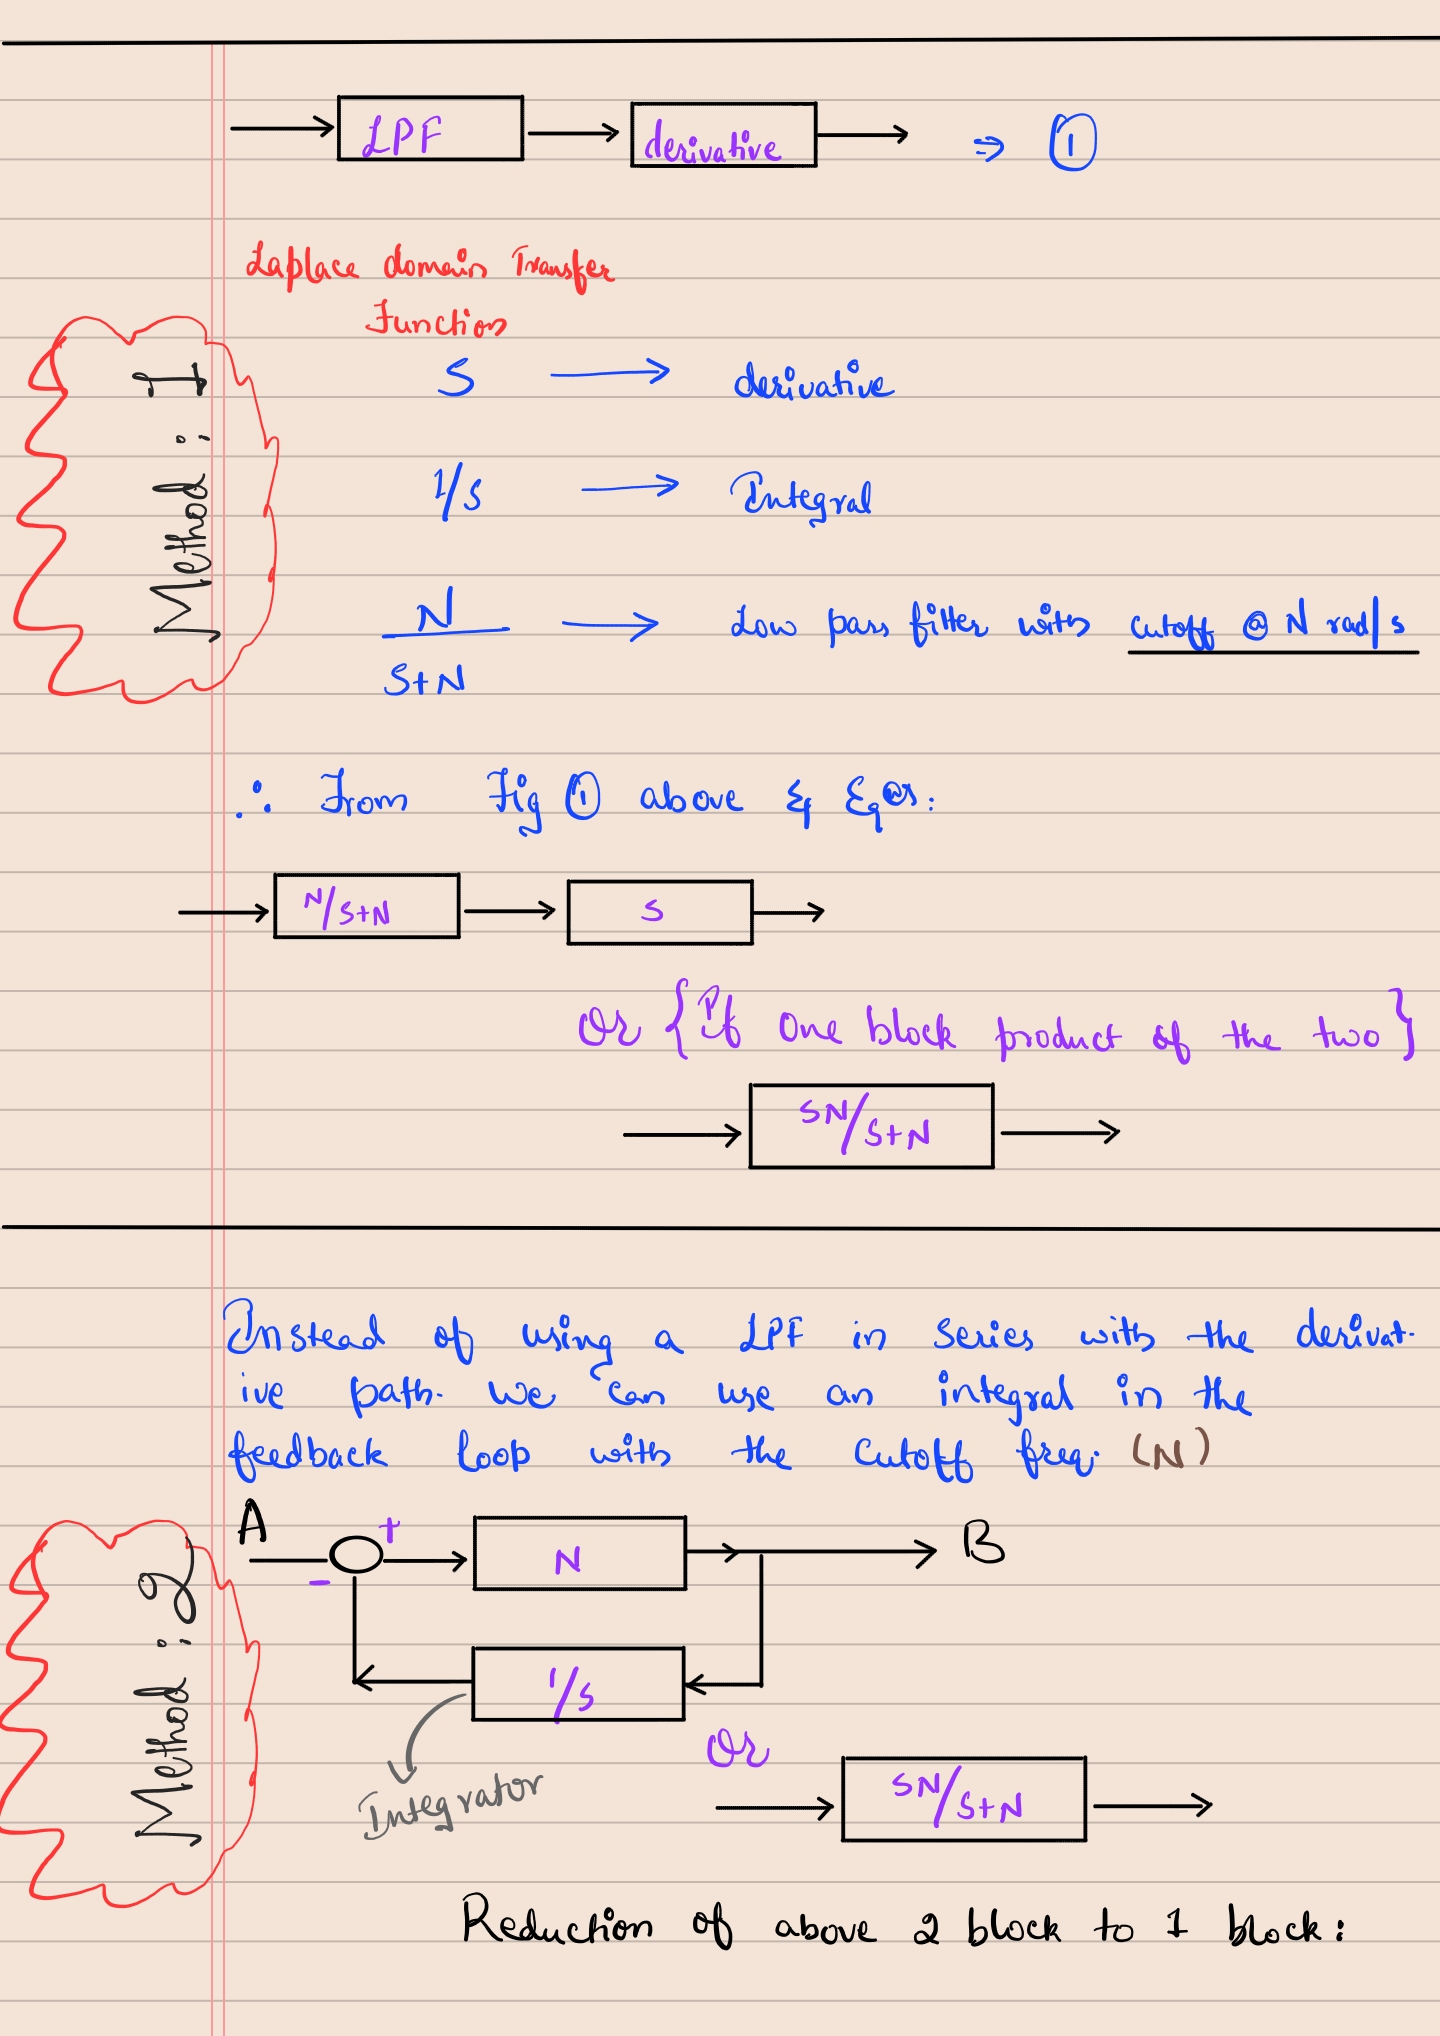 LPF derivative ⇒ ①
Laplace domain Transfer
Function
S → derivative
1/S → Integral
N/S+N → Low pass filter with cutoff @ N rad/s
Method : I
∴ From Fig ① above & Eqns.
N/S+N S
Or {if One block product of the two}
SN/S+N
Instead of using a LPF in series with the derivat-
ive path. we can use an integral in the
feedback loop with the cutoff freq. (N)
A + - N B
1/S
Integrator
Or
SN/S+N
Method : 2
Reduction of above 2 block to 1 block: